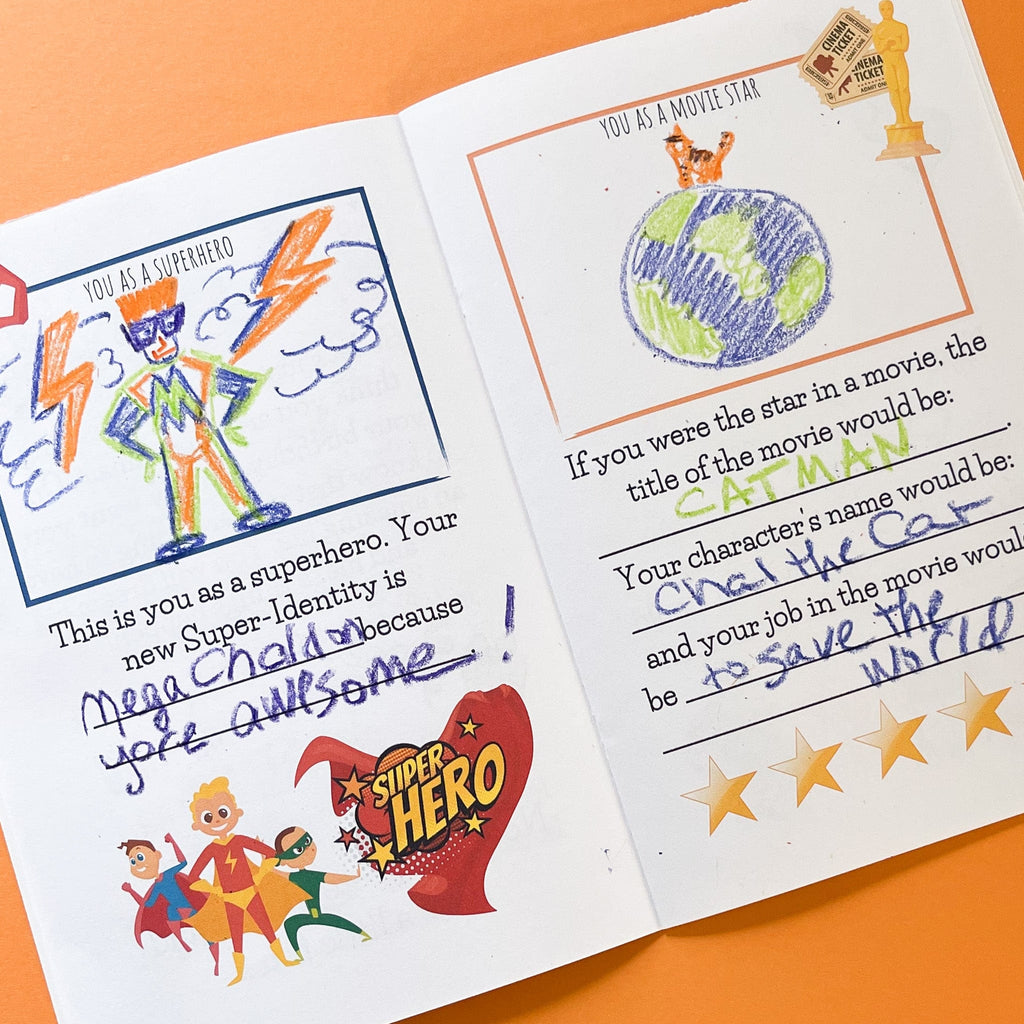 YOU AS A SUPERHERO
M
This is you as a superhero. Your
new Super-Identity is
Mega Choldon because
yore awesome!.
SUPER
HERO
CINEMA
TICKET
ADMIT ONE
CINEMA
TICKET
ADMIT ONE
YOU AS A MOVIE STAR
If you were the star in a movie, the
title of the movie would be:
CATMAN.
Your character's name would be:
the Car
and your job in the movie would
be to save the
world